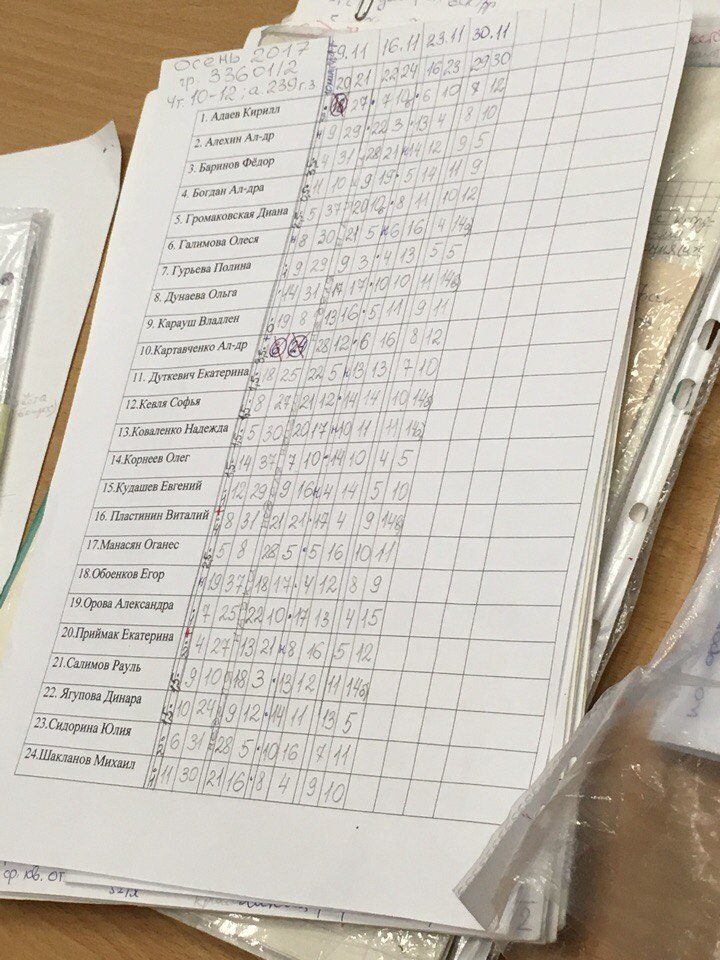 осень 2017
гр. 33601/2
Чт. 10-12; а. 239 г.з
9.11 16.11 23.11 30.11
20 21 22 24 16 23 29 30
1. Адаев Кирилл 18 27 7 6 10 8 12
2. Алехин Ал-др 9 29 22 3 13 4 8 10
3. Баринов Фёдор 4 31 28 21 14 12 9 5
4. Богдан Ал-дра 11 10 9 19 5 14 11 9
5. Громаковская Диана 5 37 20 8 11 10 12
6. Галимова Олеся 8 30 21 5 6 16 4 14
7. Гурьева Полина 9 29 9 3 4 13 5 5
8. Дунаева Ольга 14 31 17 17 10 10 11 14
9. Карауш Владлен 19 8 13 16 5 11 9 11
10.Картавченко Ал-др 6 24 28 12 6 16 8 12
11. Дуткевич Екатерина 18 25 22 5 13 13 7 10
12.Кевля Софья 8 27 21 12 14 14 10 14
13.Коваленко Надежда 5 30 20 17 10 11 11 14
14.Корнеев Олег 14 37 7 10 14 10 4 5
15.Кудашев Евгений 12 29 9 16 4 14 5 10
16. Пластинин Виталий 8 31 21 21 17 4 9 14
17.Манасян Оганес 5 8 28 5 5 16 10 11
18.Обоенков Егор 19 37 18 17 4 12 8 9
19.Орова Александра 7 25 22 10 17 13 4 15
20.Приймак Екатерина 4 27 13 21 8 16 5 12
21.Салимов Рауль 9 10 18 3 13 12 11 14
22. Ягупова Динара 10 24 9 12 14 11 13 5
23.Сидорина Юлия 6 31 28 5 10 16 7 11
24.Шакланов Михаил 11 30 21 16 8 4 9 10
ср. кв. от